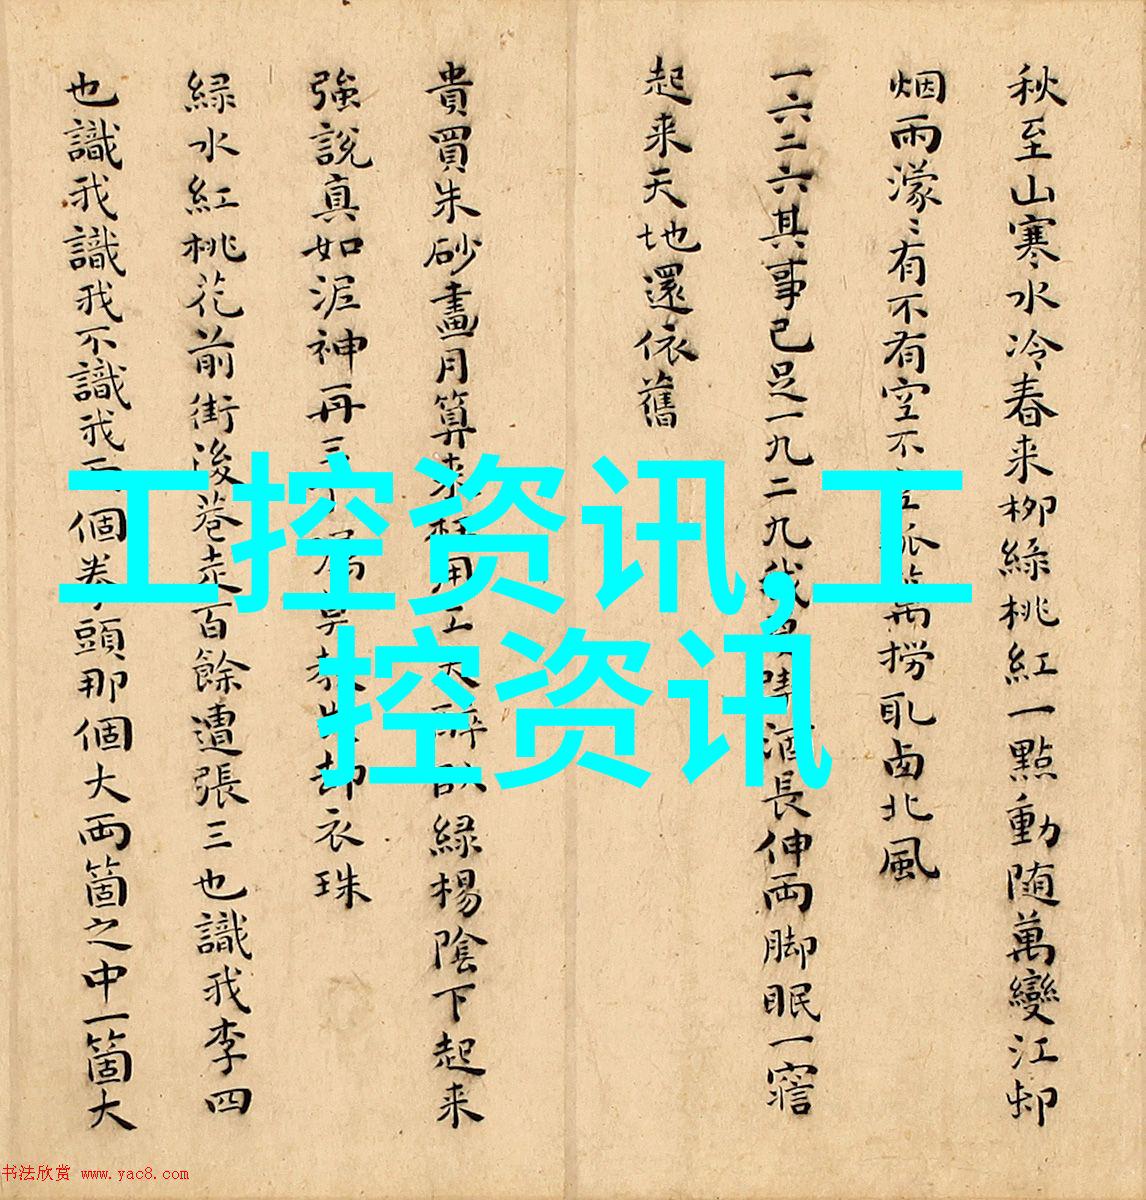 秋至山寒水冷春来柳緑桃紅一點動随萬變江邨
烟雨濛〻有不有空不撈耴卤北風
一六二六其事已足一九二九酒長伸両脚眠一寤
起来天地還依舊
貴買朱砂畫月算来緑楊陰下起来
強説真如泥神再三却衣珠
緑水紅桃花前街後巷走百餘遭張三也識我李四
也識我識我不識我個拳頭那個大両箇之中一箇大
工控资讯,工
控资讯
书法欣赏 www.yac8.com